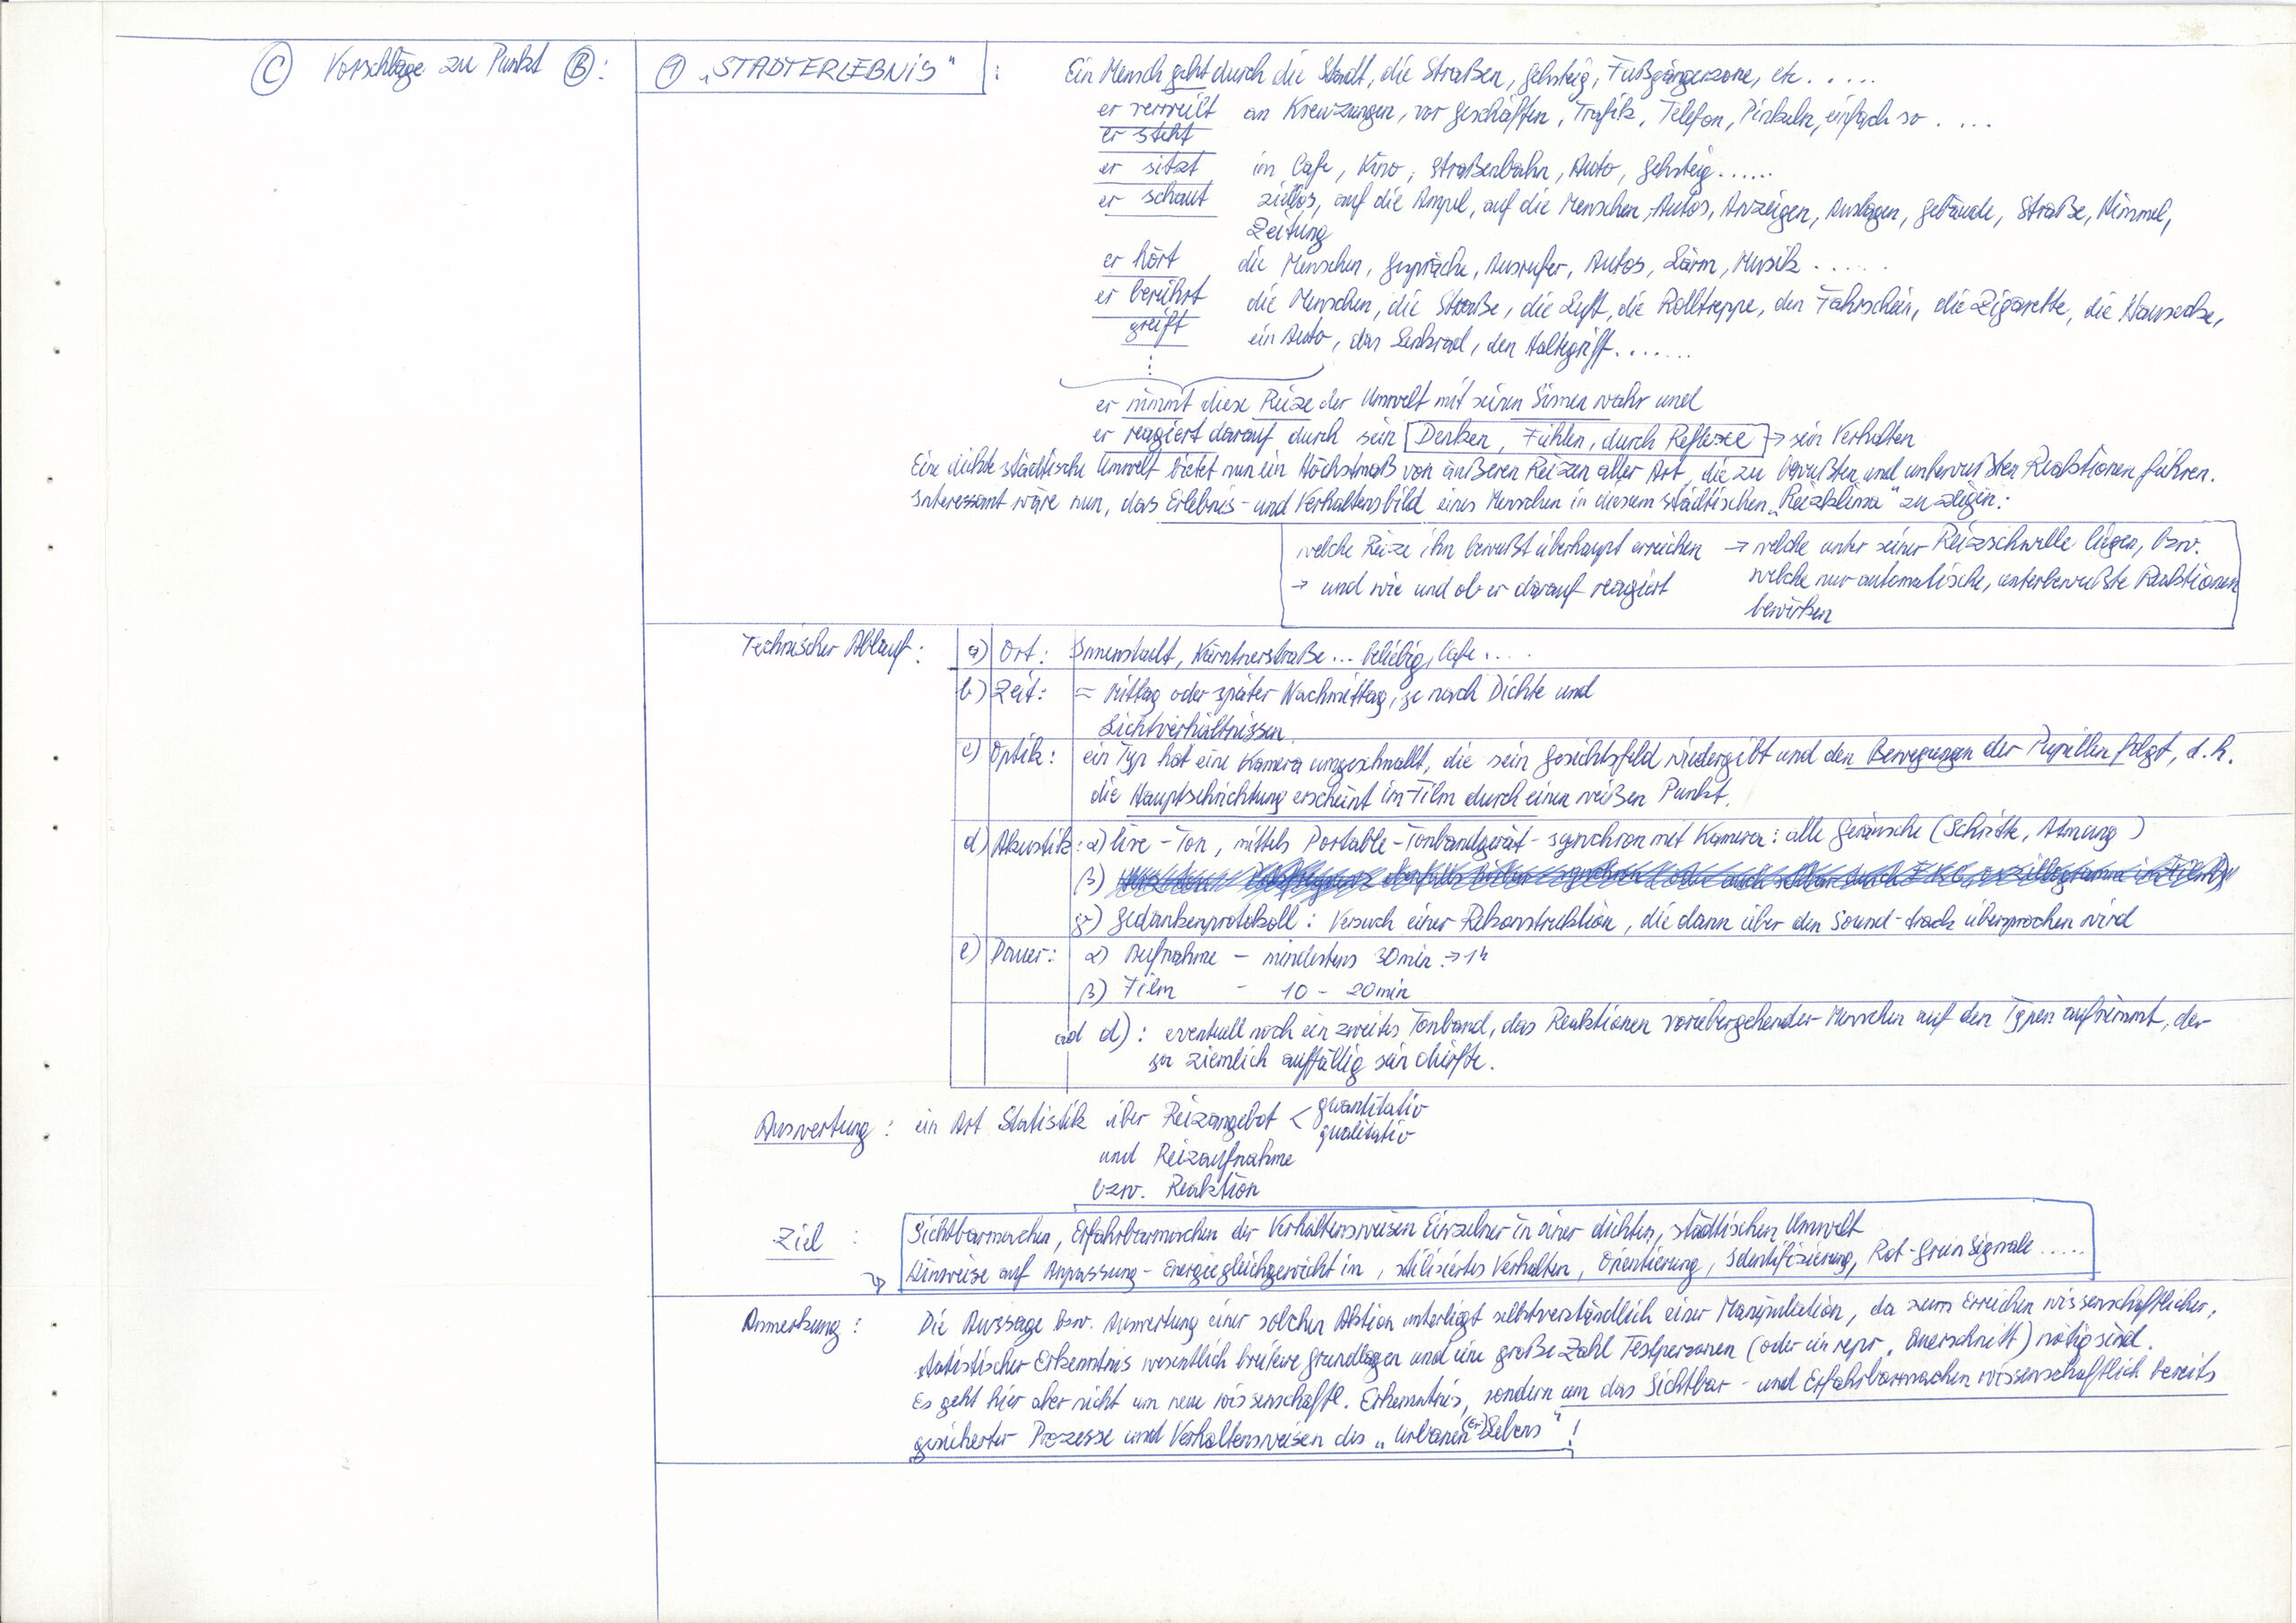 Ⓒ Vorschläge zu Punkt Ⓑ:
① „STADTERLEBNIS" :
Ein Mensch geht durch die Stadt, die Straßen, Gehsteig, Fußgängerzone, etc. . . . .
er verweilt an Kreuzungen, vor Geschäften, Trafik, Telefon, Pinkeln, einfach so . . . .
er steht
er sitzt im Cafe, Kino, Straßenbahn, Auto, Gehsteig......
er schaut ziellos, auf die Ampel, auf die Menschen, Autos, Anzeigen, Auslagen, Gebäude, Straße, Himmel,
Zeitung
er hört die Menschen, Gespräche, Ausrufer, Autos, Lärm, Musik . . . . .
er berührt die Menschen, die Straße, die Luft, die Rolltreppe, den Fahrschein, die Zigarette, die Hausecke,
greift ein Auto, das Lenkrad, den Haltegriff.......
er nimmt diese Reize der Umwelt mit seinen Sinnen wahr und
er reagiert darauf durch sein Denken, Fühlen, durch Reflexe → sein Verhalten
Eine dichte städtische Umwelt bietet nun ein Höchstmaß von äußeren Reizen aller Art, die zu bewußten und unbewußten Reaktionen führen.
Interessant wäre nun, das Erlebnis- und Verhaltensbild eines Menschen in diesem städtischen „Reizklima" zu zeigen:
welche Reize ihn bewußt überhaupt erreichen → welche unter seiner Reizschwelle liegen, bzw.
→ und wie und ob er darauf reagiert welche nur automatische, unterbewußte Reaktionen
bewirken
Technischer Ablauf:
a) Ort: Innenstadt, Kärntnerstraße ... beliebig, Cafe . . . .
b) Zeit: = Mittag oder später Nachmittag, je nach Dichte und
Lichtverhältnissen.
c) Optik: ein Typ hat eine Kamera umgeschnallt, die sein Gesichtsfeld wiedergibt und den Bewegungen der Pupillen folgt, d.h.
die Hauptsehrichtung erscheint im Film durch einen weißen Punkt.
d) Akustik: α) live-Ton, mittels Portable-Tonbandgerät - synchron mit Kamera: alle Geräusche (Schritte, Atmung)
β)
γ) Gedankenprotokoll: Versuch einer Rekonstruktion, die dann über den Sound-track übersprochen wird
e) Dauer: α) Aufnahme - mindestens 30min → 1h
β) Film - 10 - 20min
ad d): eventuell noch ein zweites Tonband, das Reaktionen vorübergehender Menschen auf den Typen aufnimmt, der
ja ziemlich auffällig sein dürfte.
Auswertung: ein Art Statistik über Reizangebot < quantitativ
qualitativ
und Reizaufnahme
bzw. Reaktion
Ziel : Sichtbarmachen, Erfahrbarmachen der Verhaltensweisen Einzelner in einer dichten, städtischen Umwelt
Hinweise auf Anpassung - Energiegleichgewicht in, stilisiertes Verhalten, Orientierung, Identifizierung, Rot-Grün Signale .....
Anmerkung: Die Aussage bzw. Auswertung einer solchen Aktion unterliegt selbstverständlich einer Manipulation, da zum Erreichen wissenschaftlicher,
statistischer Erkenntnis wesentlich breitere Grundlagen und eine große Zahl Testpersonen (oder ein repr. Querschnitt) nötig sind.
Es geht hier aber nicht um neue wissenschaftl. Erkenntnis, sondern um das Sichtbar- und Erfahrbarmachen wissenschaftlich bereits
gesicherter Prozesse und Verhaltensweisen des „urbanen (Er)Lebens"!